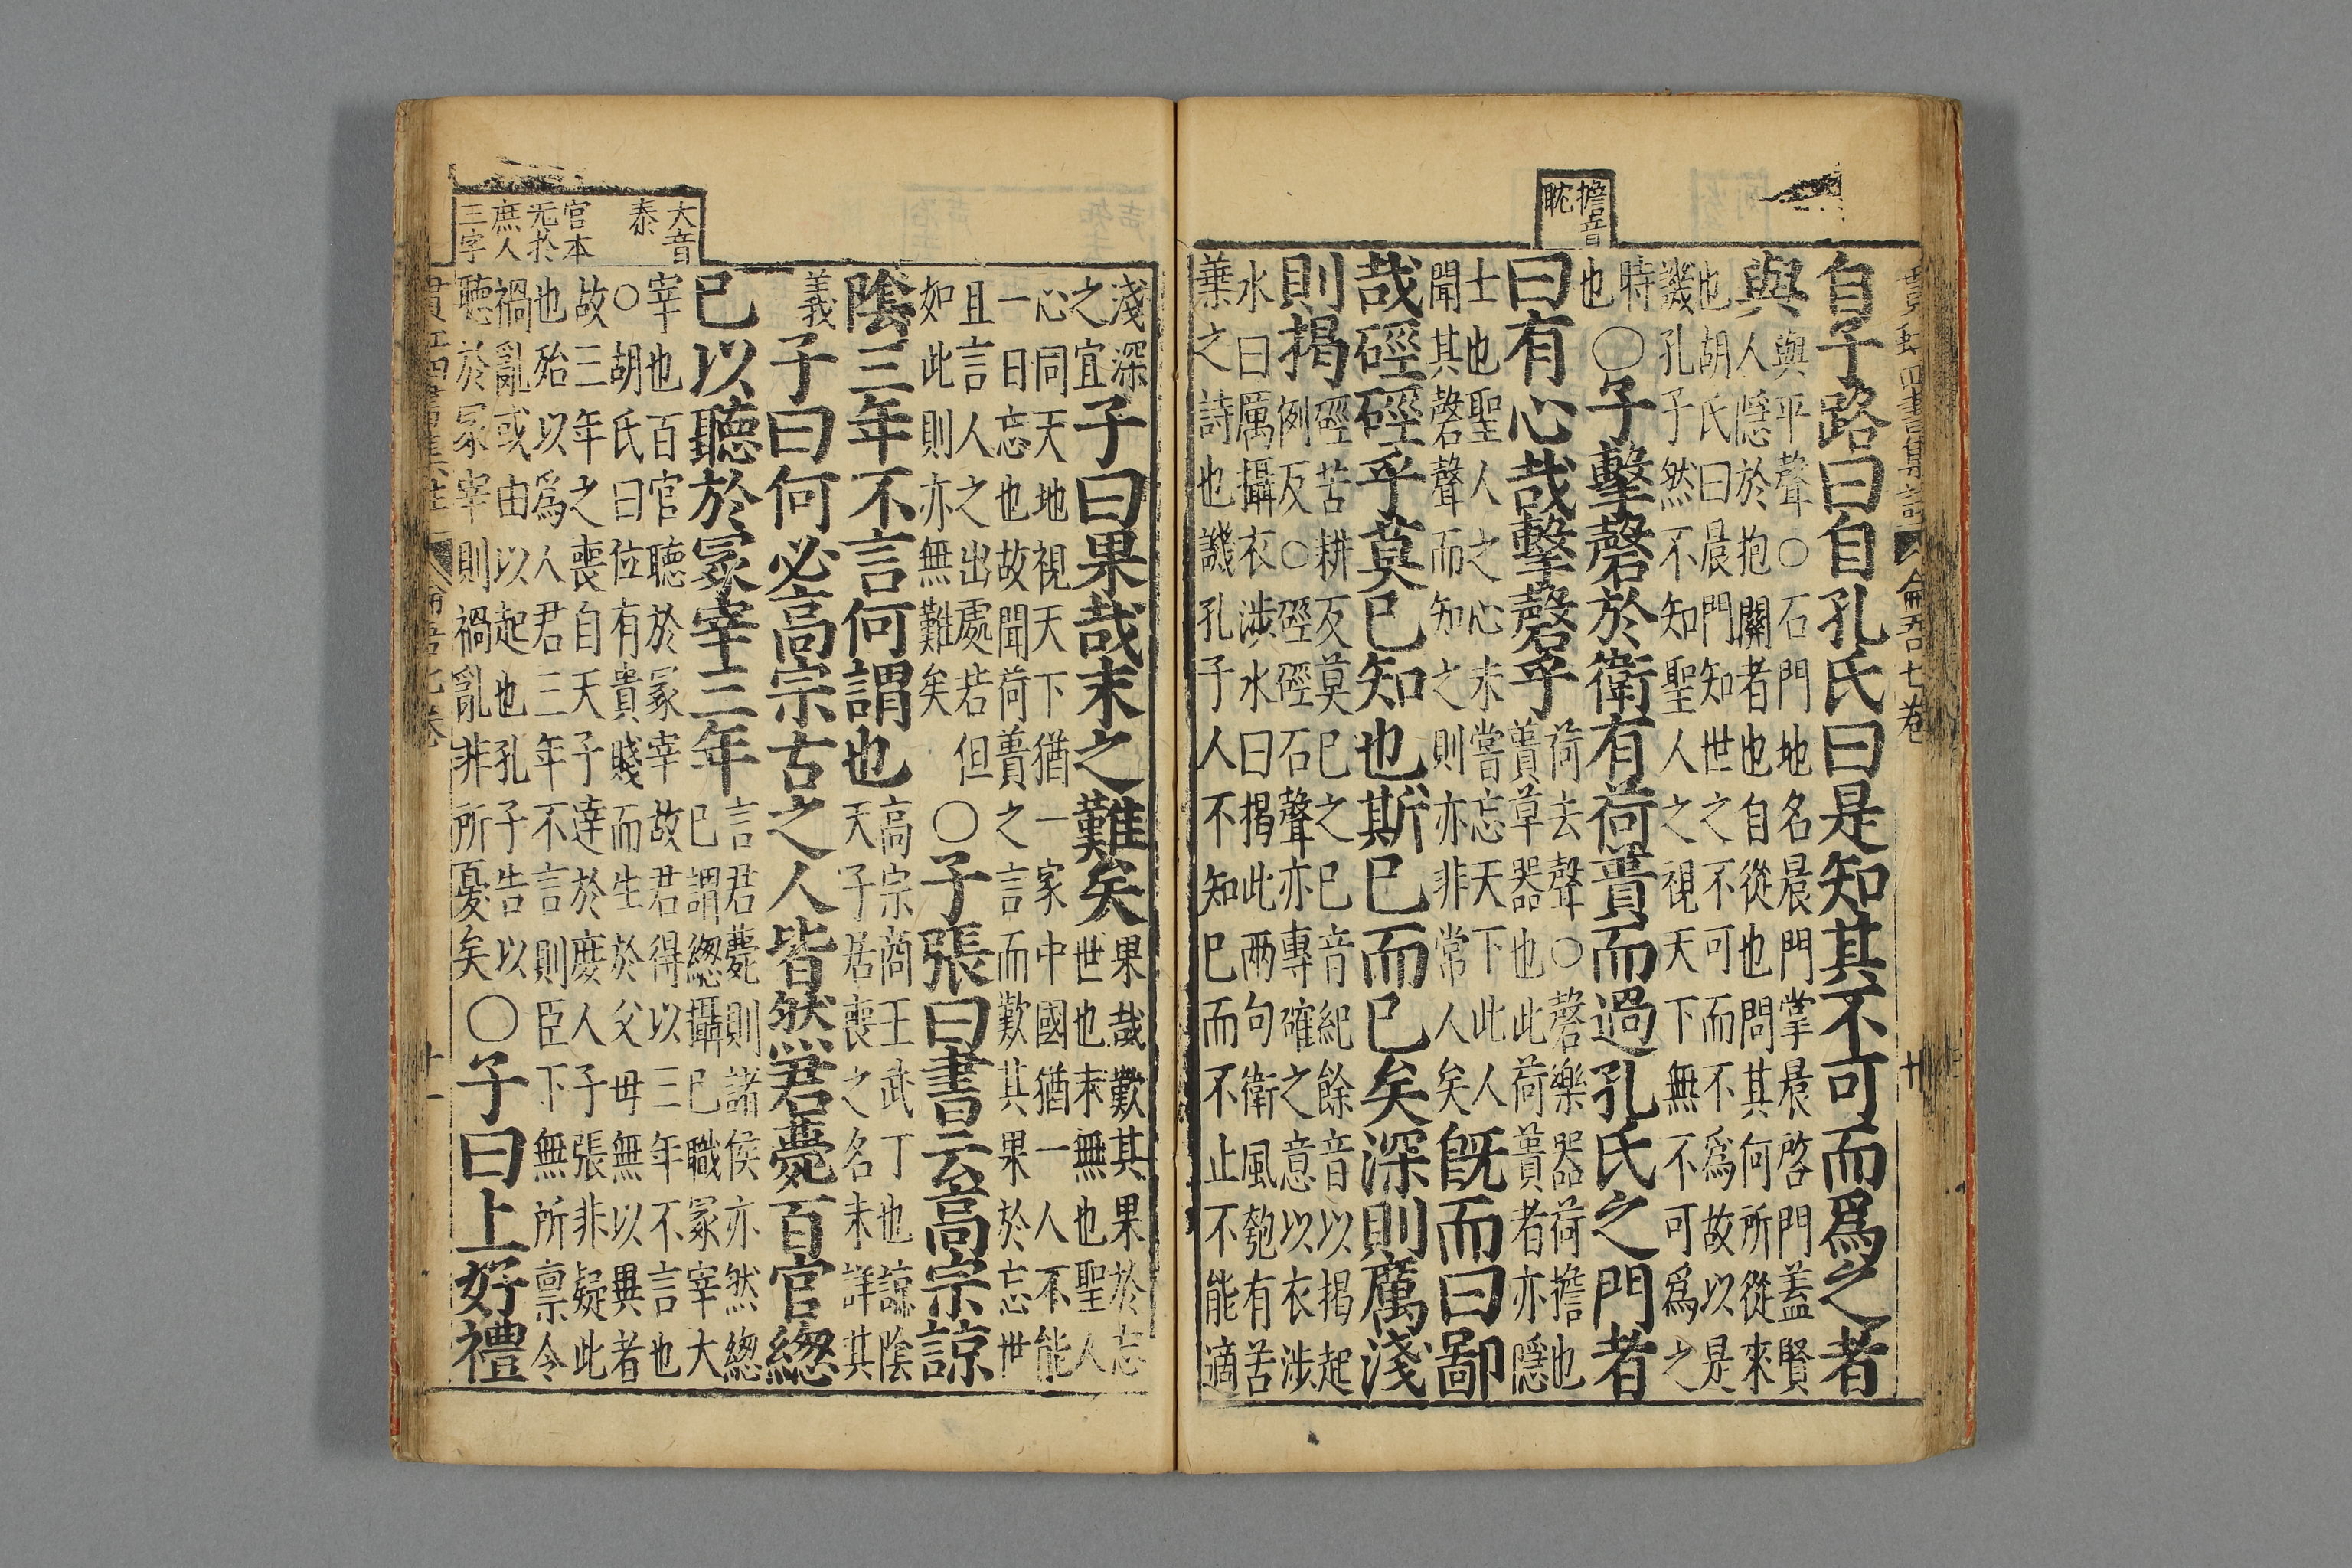 貫虹四書集註 論語七卷 十
自子路曰自孔氏曰是知其不可而爲之者
與
與平聲○石門地名晨門掌晨啓門蓋賢
人隱於抱關者也自從也問其何所從來
也胡氏曰晨門知世之不可而不爲故以是
譏孔子然不知聖人之視天下無不可爲之
時
也
○子擊磬於衛有荷蕢而過孔氏之門者
曰有心哉擊磬乎
荷去聲○磬樂器荷擔也
蕢草器也此荷蕢者亦隱
擔音
耽
士也聖人之心未嘗忘天下此人
聞其磬聲而知之則亦非常人矣
既而曰鄙
哉硜硜乎莫已知也斯已而已矣深則厲淺
則揭
硜苦耕反莫已之已音紀餘音以揭起
例反○硜硜石聲亦專確之意以衣涉
水曰厲攝衣涉水曰揭此兩句衛風匏有苦
葉之詩也譏孔子人不知已而不止不能適
淺深
之宜
子曰果哉末之難矣
果哉歎其果於忘
世也末無也聖人
心同天地視天下猶一家中國猶一人不能
一日忘也故聞荷蕢之言而歎其果於忘世
且言人之出處若但
如此則亦無難矣
○子張曰書云高宗諒
陰三年不言何謂也
高宗商王武丁也諒陰
天子居喪之名未詳其
義
子曰何必高宗古之人皆然君薨百官緫
已以聽於冢宰三年
言君薨則諸侯亦然緫
已謂緫攝已職冢宰大
大音
泰
宰也百官聽於冢宰故君得以三年不言也
○胡氏曰位有貴賤而生於父母無以異者
故三年之喪自天子達於庶人子張非疑此
也殆以爲人君三年不言則臣下無所禀令
官本
无於
庶人
三字
禍亂或由以起也孔子告以
聽於冢宰則禍亂非所憂矣
○子曰上好禮
貫虹四書集註 論語七卷 十一